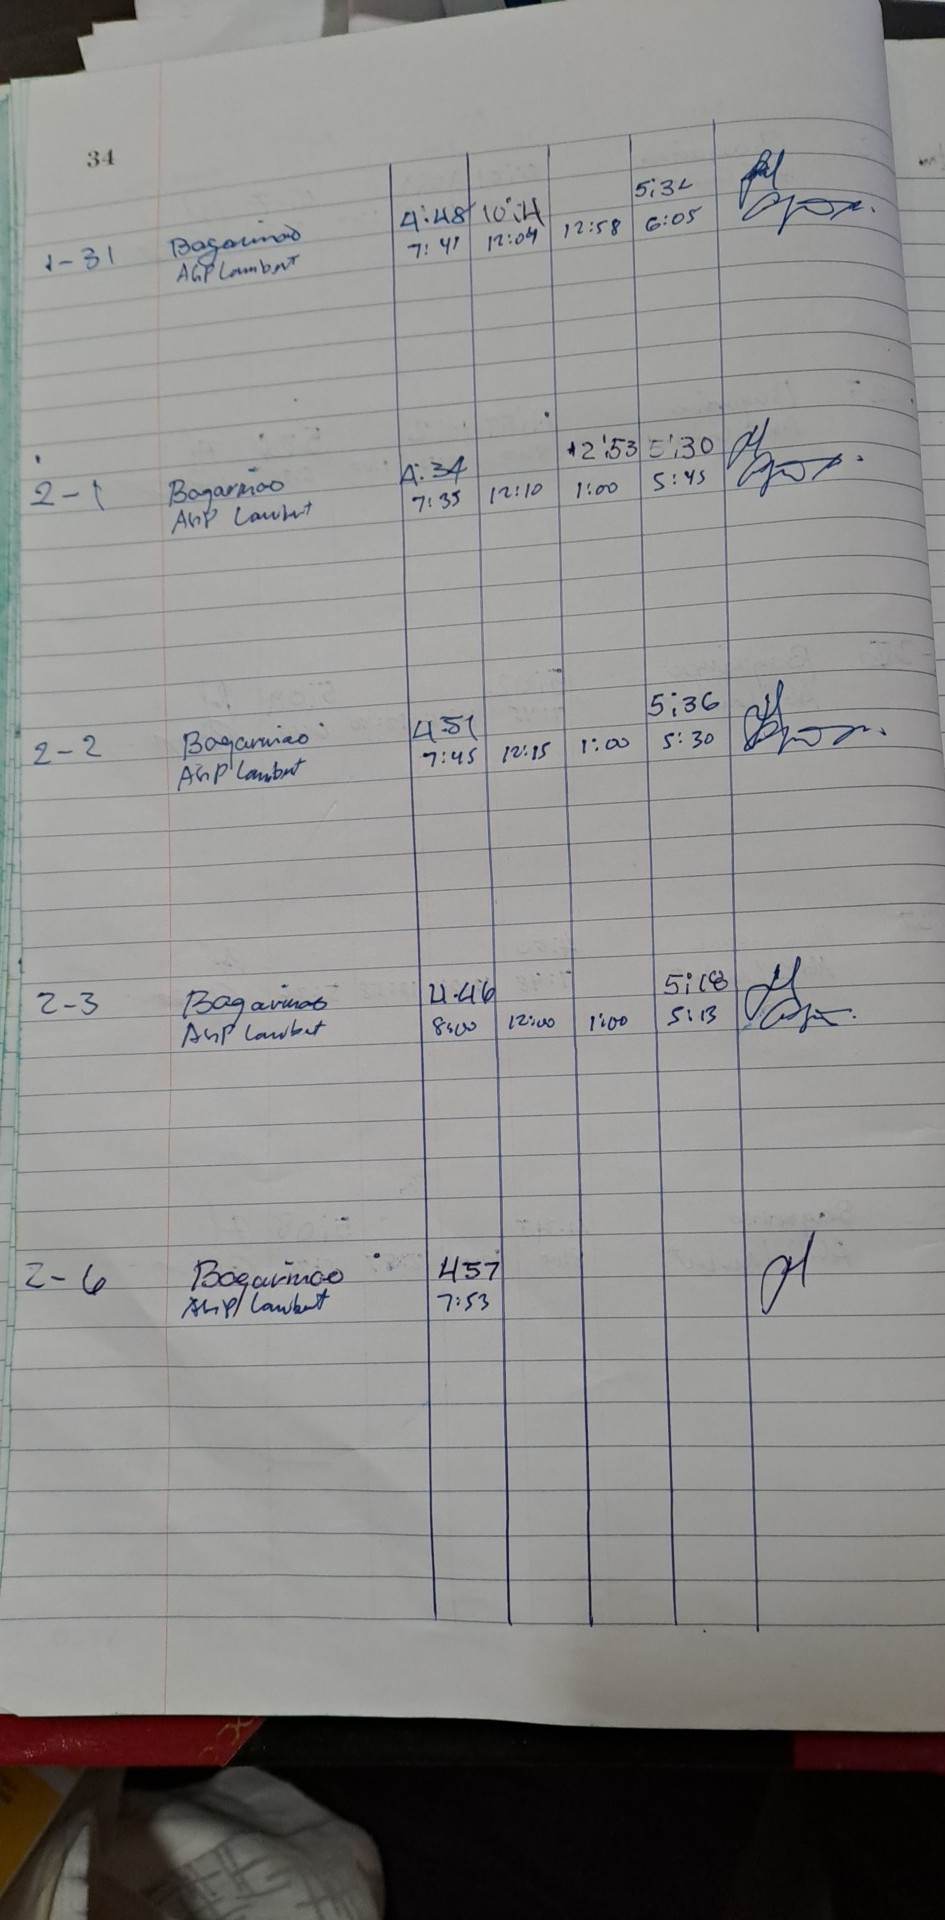 34
5:32
4:48 10:14
1-31 Bagarinao 7:41 12:04 12:58 6:05
AGP Lambert
12:53 5:30
4:34
2-1 Bagarinao 7:35 12:10 1:00 5:45
AGP Lambert
5:36
4:51
2-2 Bagarinao 7:45 12:15 1:00 5:30
AGP Lambert
5:18
2-3 Bagarinao 4:46
AGP Lambert 8:00 12:00 1:00 5:13
2-6 Bagarinao 457
AGP Lambert 7:53